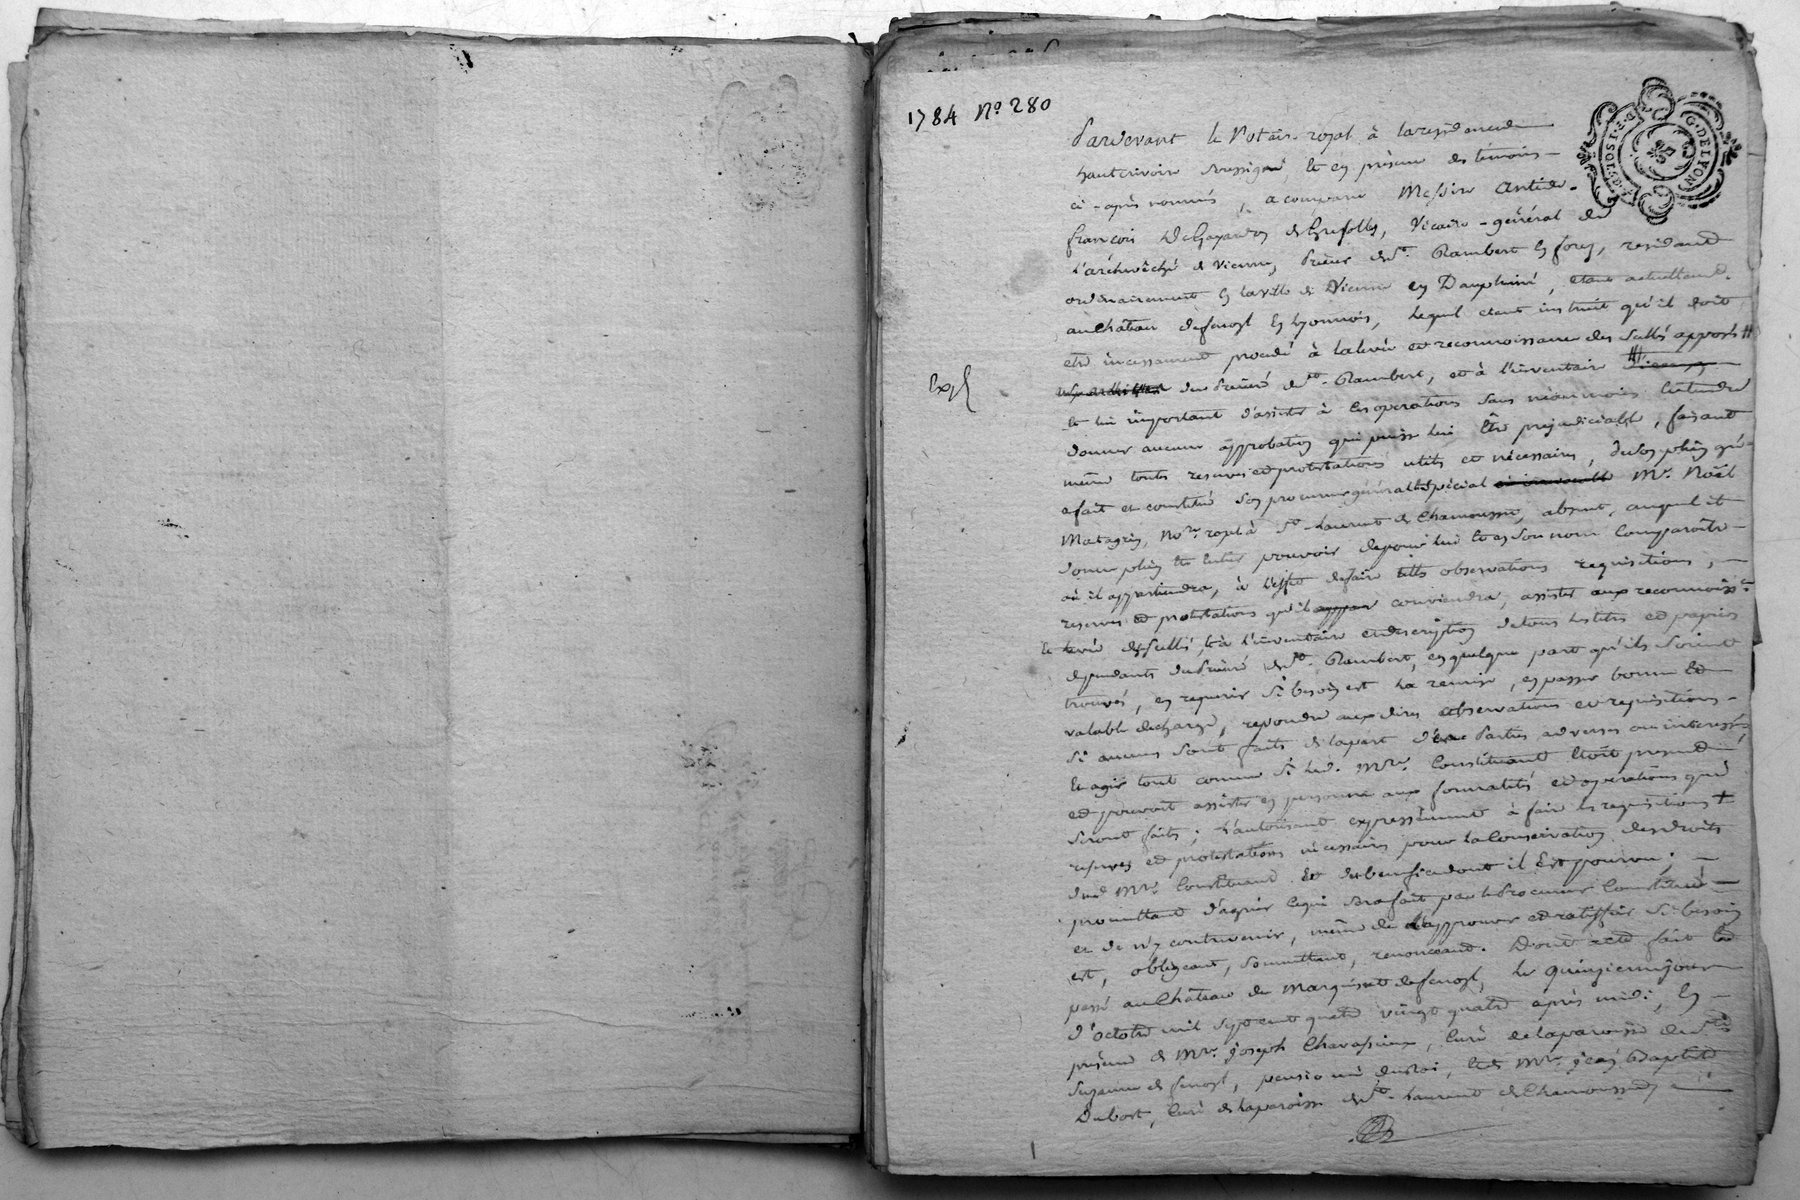 1784 N° 280
G. DE LYON
Pardevant le Notaire royal à la residence de
hauterivoire soussigné, et en présence des témoins
ci-après nommés, a comparu Messire Antide-
françois DeGayardon de Grefolles, Vicaire-général de
l'archevêché de Vienne, Prieur de St. Rambert en forez, residant
ordinairement en la ville de Vienne en Dauphiné, etant actuellement
au Château de fenoyl en Lyonnois, lequel etant instruit qu'il doit
etre incessament procedé à la levée et reconnoissance des scellés apposés #
du Prieuré de St. Rambert, et à l'inventaire
et lui important d'assister à ces operations sans néanmoins entendre
donner aucune approbation qui puisse lui être prejudiciable, faisant
même toutes reserves et protestations utiles et nécessaires, de son plein gré
a fait et constitué son procureur général et spécial Mr. Noël
Matagrin, Nore. royal à St. Laurent de Chamousset, absent, auquel il
donne plein et entier pouvoir de pour lui et en son nom comparoître
où il appartiendra, à l'effet de faire telles observations requisitions,
reserves et protestations qu'il conviendra, assister aux reconnoisse.
et levée des scellés, et à l'inventaire et description de tous les titres et papiers
dependants du Prieuré de St. Rambert, en quelque part qu'ils soient
trouvés, en requerir si besoin est la remise, en passer bonne et
valable decharge, repondre aux dires observations et requisitions
si aucuns sont faits de la part des Parties adverses ou interessés,
et agir tout comme si led. Mre. Constituant etoit present
et pouvoit assister en personne aux formalités et operations qui
seront faites; l'autorisant expressement à faire les requisitions +
reserves et protestations nécessaires pour la Conservation des droits
dud. Mre. Constituant et du benefice dont il est pourvu;
promettant d'agréer ce qui sera fait par le Procureur Constitué
et de n'y contrevenir, même de l'approuver et ratiffier si besoin
est, obligeant, soumettant, renonceant. Dont acte fait et
passé au Château du Marquisat de fenoyl, le quinzieme jour
d'octobre mil sept cent quatre vingt quatre après midi, en
présence de Mre. Joseph Chavassieux, Curé de la paroisse de Ste.
Suzanne de fenoyl, pensionné du Roi, et de Mre. Jean Baptiste
Dubost, Curé de la paroisse de St. Laurent de Chamousset